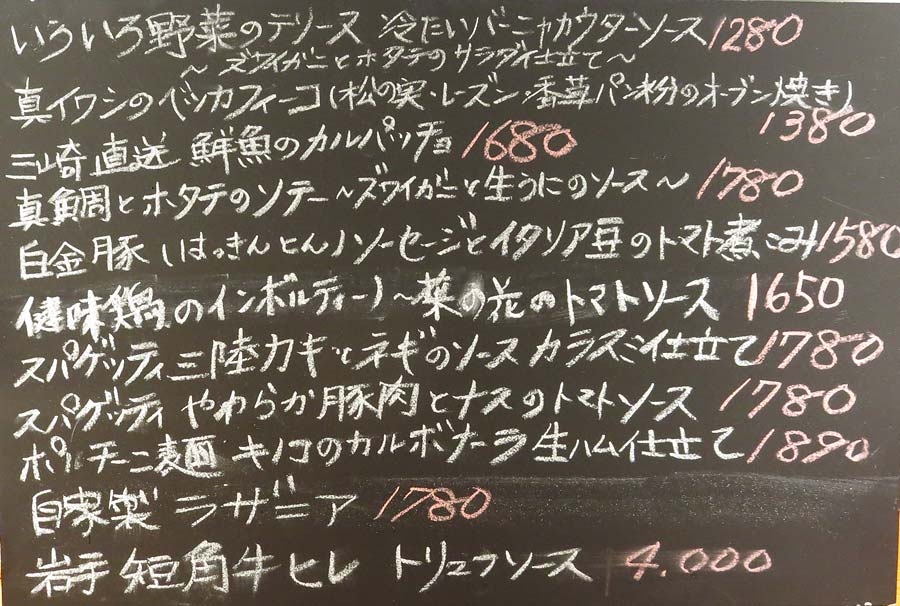 いろいろ野菜のテリーヌ 冷たいバーニャカウダーソース 1280
～ズワイガニとホタテのサラダ仕立て～
真イワシのベッカフィーコ(松の実・レーズン・香草パン粉のオーブン焼き)
1380
三崎直送 鮮魚のカルパッチョ 1680
真鯛とホタテのソテー～ズワイガニと生うにのソース～ 1780
白金豚(はっきんとん)ソーセージとイタリア豆のトマト煮こみ 1580
健味鶏のインボルティーノ～菜の花のトマトソース 1650
スパゲッティ 三陸カキとネギのソース カラスミ仕立て 1780
スパゲッティ やわらか豚肉とナスのトマトソース 1780
ポルチーニ麺 キノコのカルボナーラ 生ハム仕立て 1890
自家製 ラザニア 1780
岩手 短角牛ヒレ トリュフソース 4.000